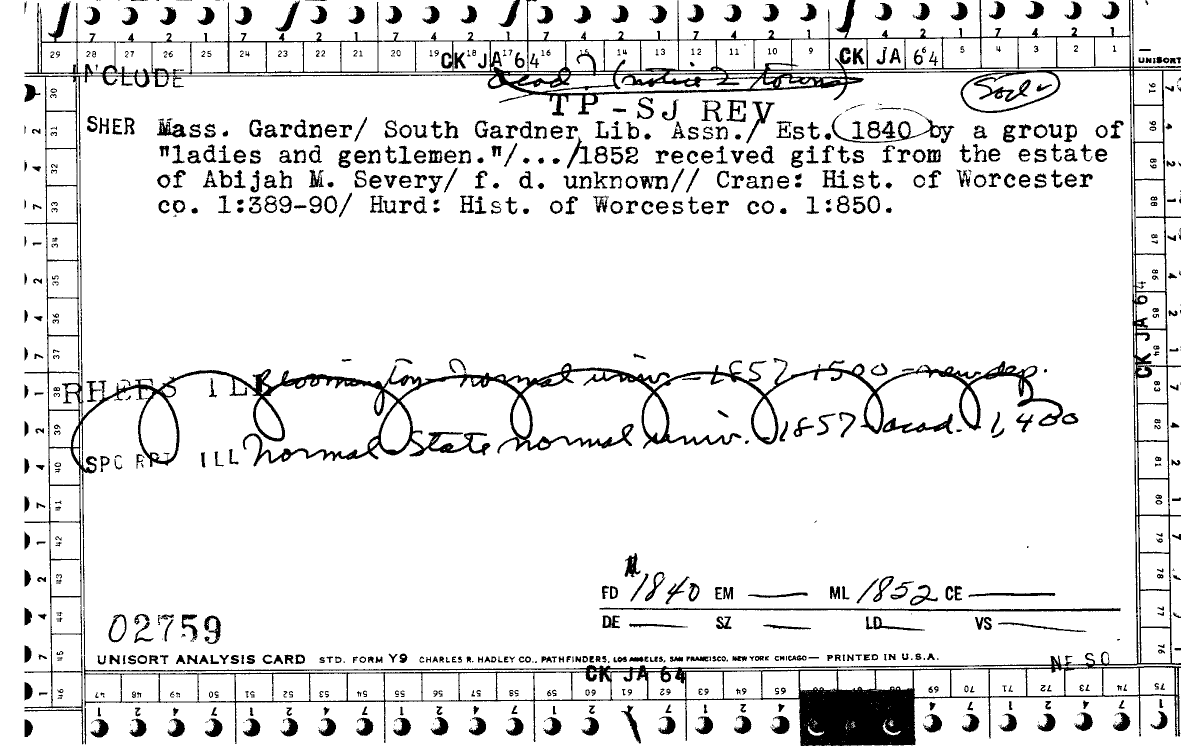 7 4 2 1 7 4 2 1 7 4 2 1 7 4 2 1 7 4 2 1 7 4 2 1 7 4 2 1
29 28 27 26 25 24 23 22 21 20 19 18 17 16 15 14 13 12 11 10 9 5 4 3 2 1 UNISORT
CK JA 64 CK JA 64
INCLUDE acad? (notice 2 towns) Socl
TP-SJ REV
SHER Mass. Gardner/ South Gardner Lib. Assn./ Est. 1840 by a group of
"ladies and gentlemen."/.../1852 received gifts from the estate
of Abijah M. Severy/ f. d. unknown// Crane: Hist. of Worcester
co. 1:389-90/ Hurd: Hist. of Worcester co. 1:850.
RHEES ILL Bloomington-Normal univ. - 1857 - 1500 - new dep.
SPC RPT ILL Normal - State normal univ. - 1857 - acad. 1,400
CK JA 64
FD 1840 EM — ML 1852 CE —
DE — SZ — LD — VS —
02759
UNISORT ANALYSIS CARD STD. FORM Y9 CHARLES R. HADLEY CO., PATHFINDERS, LOS ANGELES, SAN FRANCISCO, NEW YORK CHICAGO— PRINTED IN U.S.A.
NE SO
CK JA 64
30 31 32 33 34 35 36 37 38 39 40 41 42 43 44 45 46
47 48 49 50 51 52 53 54 55 56 57 58 59 60 61 62 63 64 65 66 69 70 71 72 73 74 75
76 77 78 79 80 81 82 83 84 85 86 87 88 89 90 91